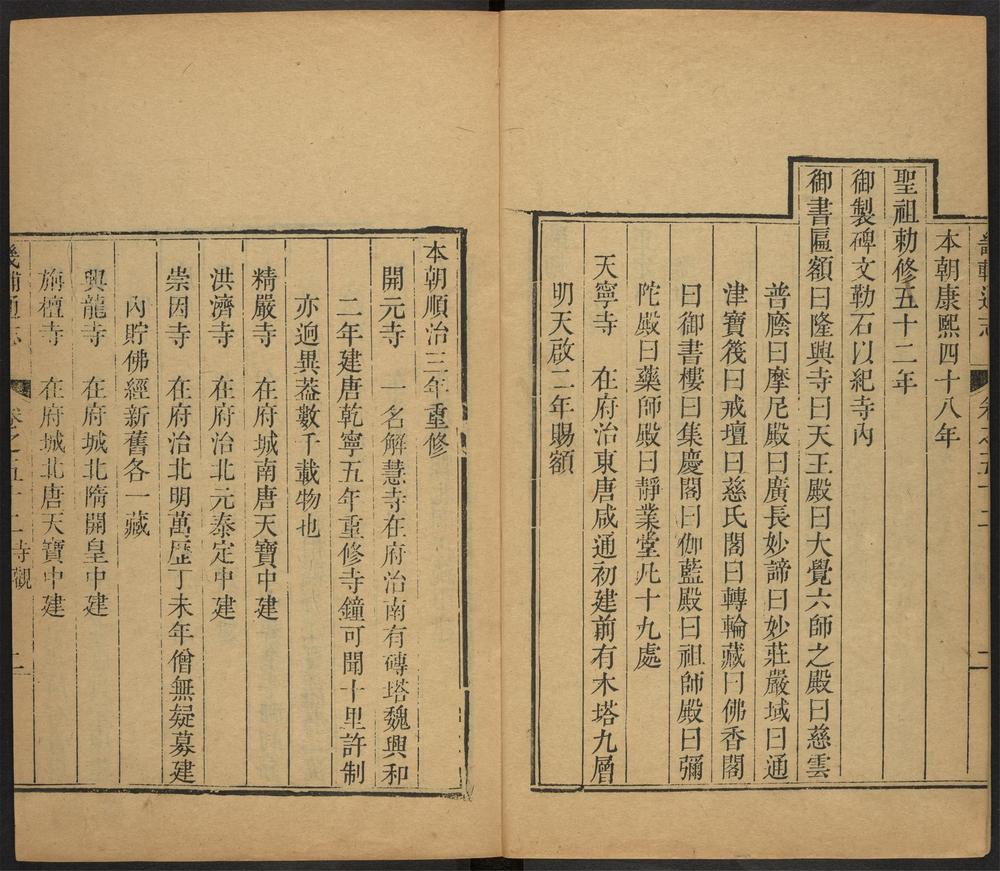 畿輔通志 卷之五十二 二
本朝康熙四十八年
聖祖勅修五十二年
御製碑文勒石以紀寺內
御書匾額曰隆興寺曰天王殿曰大覺六師之殿曰慈雲
普廕曰摩尼殿曰廣長妙諦曰妙莊嚴域曰通
津寶筏曰戒壇曰慈氏閣曰轉輪藏曰佛香閣
曰御書樓曰集慶閣曰伽藍殿曰祖師殿曰彌
陀殿曰藥師殿曰靜業堂凡十九處
天寧寺 在府治東唐咸通初建前有木塔九層
明天啟二年賜額
本朝順治三年重修
開元寺 一名解慧寺在府治南有磚塔魏興和
二年建唐乾寧五年重修寺鐘可聞十里許制
亦逈異葢數千載物也
精嚴寺 在府城南唐天寶中建
洪濟寺 在府治北元泰定中建
崇因寺 在府治北明萬歷丁未年僧無疑募建
內貯佛經新舊各一藏
興龍寺 在府城北隋開皇中建
旃檀寺 在府城北唐天寶中建
畿輔通志 卷之五十二 寺觀 二